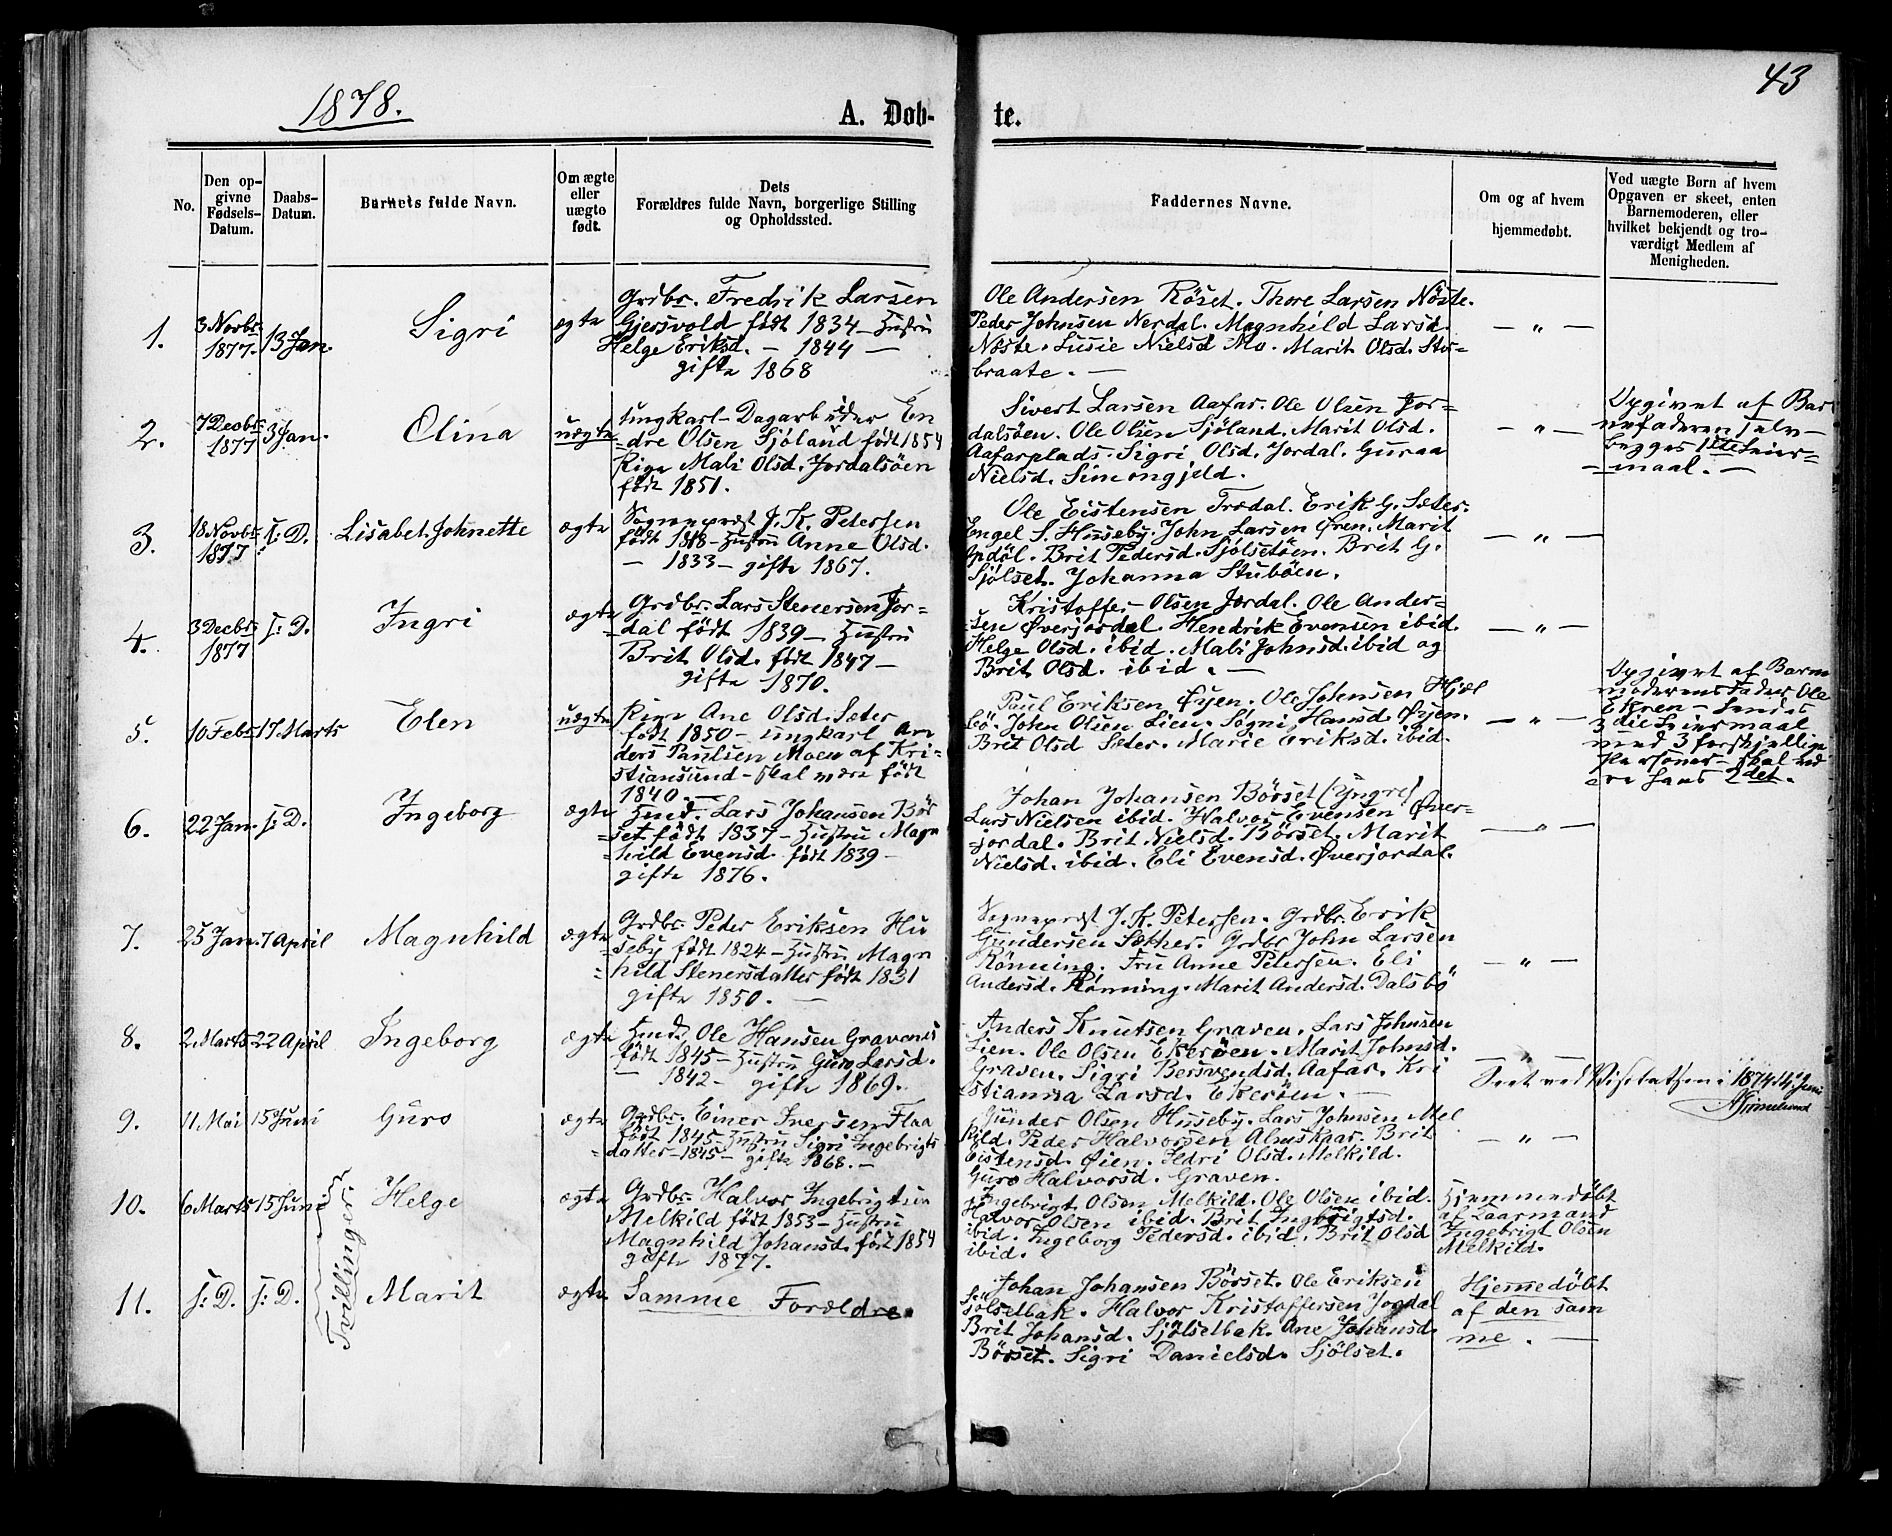 1878.
A. Døb-
te.
43
No.
Den op-
givne
Fødsels-
Datum.
Daabs-
Datum.
Barnets fulde Navn.
Om ægte
eller
uægte
født.
Dets
Forældres fulde Navn, borgerlige Stilling
og Opholdssted.
Faddernes Navne.
Om og af hvem
hjemmedøbt.
Ved uægte Børn af hvem
Opgaven er skeet, enten
Barnemoderen, eller
hvilket bekjendt og tro-
værdigt Medlem af
Menigheden.
1.
3 Novbr.
1877.
13 Jan.
Sigri
ægte
Grdbr. Fredrik Larsen
Gjersvold født 1834 – Hustru
Helge Eriksd. – 1844 –
gifte 1868
Ole Andersen Röset. Thore Larsen Nöste.
Peder Johnsen Nerdal. Magnhild Larsd.
Nöste. Susie Nielsd Mo. Marit Olsd. Stu-
braate. –
– " –
2.
7 Decbr
1877
3 Jan.
Olina
uægte
Ungkarl – Dagarbeider En
dre Olsen Sjöland født 1854
Pige Mali Olsd. Jordalsöen
født 1851.
Sivert Larsen Aafar. Ole Olsen Jor-
dalsöen. Ole Olsen Sjöland. Marit Olsd.
Aafarplads. Sigri Olsd. Jordal. Guraa
Nielsd. Simongjeld.
– " –
Opgivet af Bar
nefaderen selv –
begges 1ste Leier-
maal. –
3.
18 Novbr
1877
s: D.
Lisabet Johnette
ægte
Sognepræst J. K. Petersen
født 1818 – Hustru Anne Olsd.
– 1833 – gifte 1867.
Ole Eistensen Trædal. Erik G. Sæter.
Engel S. Huseby. John Larsen Øren. Marit
Opdöl. Brit Pedersd. Sjölsetöen. Brit G.
Sjölset. Johanna Stuböen.
– " –
4.
3 Decbr.
1877
s: D.
Ingri
ægte
Grdbr. Lars Stenersen Jor-
dal født 1839 – Hustru
Brit Olsd. født 1847 –
gifte 1870.
Kristoffer Olsen Jordal. Ole Ander-
sen Øverjordal. Hendrik Evensen ibid.
Helge Olsd. ibid. Mali Johnsd. ibid og
Brit Olsd. ibid. –
– " –
5.
10 Febr
17 Marts
Elen
uægte
Pige Ane Olsd. Sæter
født 1850 – Ungkarl An
ders Paulsen Moen af Kri-
stiansund – skal være født
1840. –
Paul Eriksen Øyen. Ole Johnsen Hjæl
bö. John Olsen Lien. Segni Hansd. Øyen.
Brit Olsd Sæter. Marie Eriksd. ibid.
– " –
Opgivet af Barn
moderens Fader Ole
Ekren – hendes
3die Leiermaal
med 3 forskjellige
Personer – skal vd
ere hans 2det.
6.
22 Jan.
s: D.
Ingeborg
ægte
Hmd. Lars Johansen Bör
set født 1837 – Hustru Magn
hild Evensd. født 1839 –
gifte 1876.
Johan Johansen Börset (Yngre)
Lars Nielsen ibid. Halvor Evensen Øver-
jordal. Brit Nielsd. Börset. Marit
Nielsd. ibid. Eli Evensd. Øverjordal.
– " –
7.
25 Jan.
7 April
Magnhild
ægte
Grdbr. Peder Eriksen Hu
seby født 1824 – Hustru Magn
hild Stenersdatter født 1831
gifte 1850. –
Sognepræst J. K. Petersen. Grdbr. Erik
Gundersen Sæther. Grdbr John Larsen
Rönning. Fru Anne Petersen. Eli
Andersd. Rönning. Marit Andersd. Dalsbö
– " –
8.
2 Marts
22 April
Ingeborg
ægte
Hmd. Ole Hansen Gravenes
født 1845 – Hustru Guro Larsd.
– 1842 – gifte 1869.
Anders Knutsen Graven. Lars Johnsen
Lien. Ole Olsen Ekeröen. Marit Johnsd.
Graven. Sigri Bersvendsd. Aafar. Kri
stianna Larsd. Ekeröen. –
– " –
Seet ved Visitatsen i 1878 14 Juni
9.
11 Mai
15 Juni
Guro
ægte
Grdbr. Einer Iversen Flaa
født 1845 – Hustru Sigri Ingebrigts
datter – 1845 – gifte 1868. –
Gunder Olsen Huseby. Lars Johnsen Mel
kild. Peder Halvorsen Almskaar. Brit
Eistensd. Øien. Ildri Olsd. Melkild.
Guro Halvorsd. Graven.
– " –
10.
6 Marts
15 Juni
Tvillinger.
Helge
ægte
Grdbr. Halvor Ingebrigtsen
Melkild født 1853 – Hustru
Magnhild Johansd. født 1854
gifte 1877.
Ingebrigt Olsen Melkild. Ole Olsen ibid.
Halvor Olsen ibid. Brit Ingbrigtsd.
ibid. Ingeborg Pedersd. ibid. Brit Olsd
ibid.
Hjemmedöbt
af Laarmand
Ingebrigt Olsen
Melkild.
11.
s: D.
s: D.
Marit
ægte
Samme Forældre.
Johan Johansen Börset. Ole Eriksen
Sjölsetbak. Halvor Kristoffersen Jordal
Brit Johansd. Sjölsetbak. Ane Johansd.
Börset. Sigri Danielsd. Sjölset.
Hjemmedöbt
af den sam
me. –